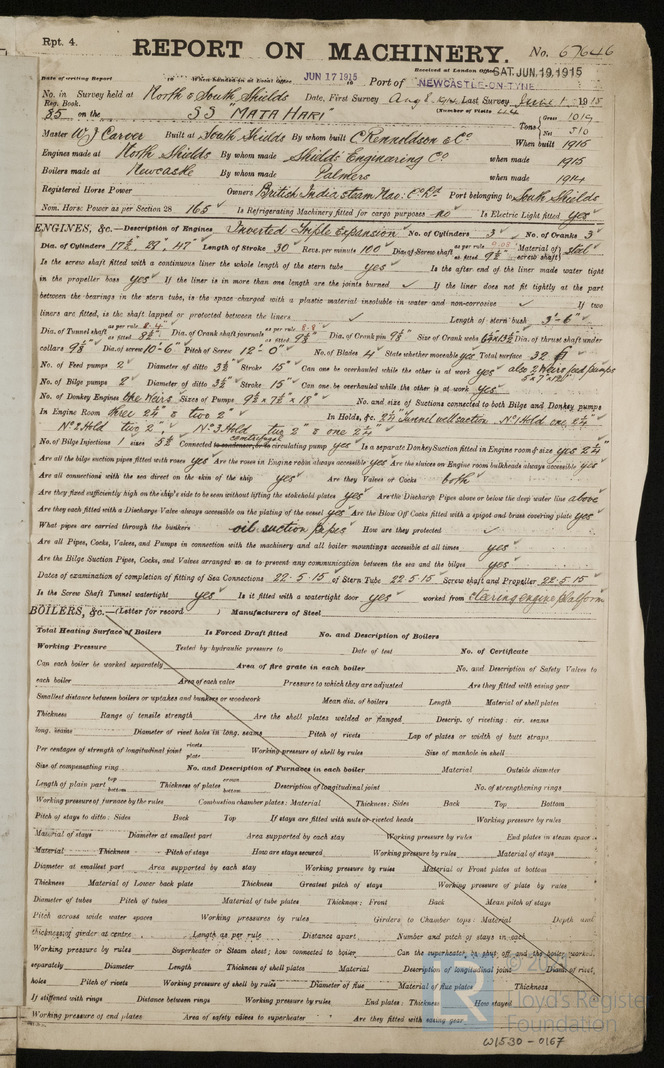 Rpt. 4.
REPORT ON MACHINERY.
No. 67646
Date of writing Report 19 When handed in at Local Office JUN 17 1915 19 Port of NEWCASTLE-ON-TYNE
Received at London Office SAT. JUN. 19. 1915
No. in Survey held at North & South Shields Date, First Survey Aug 8 Last Survey June 1st 1915
Reg. Book. (Number of Visits
35 on the SS "MATA HARI" Tons Gross 1019 Net 310
Master W J Carver Built at South Shields By whom built C Rennoldson & Co When built 1915
Engines made at North Shields By whom made Shields Engineering Co when made 1915
Boilers made at Newcastle By whom made Palmers when made 1914
Registered Horse Power Owners British India Steam Nav: Co Ld Port belonging to South Shields
Nom. Horse Power as per Section 28 165 Is Refrigerating Machinery fitted for cargo purposes no Is Electric Light fitted yes
ENGINES, &c.—Description of Engines Inverted Triple Expansion No. of Cylinders 3 No. of Cranks 3
Dia. of Cylinders 17½" 28" 47" Length of Stroke 30 Revs. per minute 100 Dia. of Screw shaft as per rule as fitted 9½" Material of screw shaft steel
Is the screw shaft fitted with a continuous liner the whole length of the stern tube yes Is the after end of the liner made water tight
in the propeller boss yes If the liner is in more than one length are the joints burned ✓ If the liner does not fit tightly at the part
between the bearings in the stern tube, is the space charged with a plastic material insoluble in water and non-corrosive ✓ If two
liners are fitted, is the shaft lapped or protected between the liners ✓ Length of stern bush 3'-6"
Dia. of Tunnel shaft as per rule 8.4 as fitted 8½" Dia. of Crank shaft journals as per rule 8.8 as fitted 9⅛" Dia. of Crank pin 9⅛" Size of Crank webs Dia. of thrust shaft under
collars 9⅛" Dia. of screw 10'-6" Pitch of Screw 12'-0" No. of Blades 4 State whether moveable yes Total surface 32 ft
No. of Feed pumps 2 Diameter of ditto 3½" Stroke 15" Can one be overhauled while the other is at work yes also 2 Weirs feed pumps
No. of Bilge pumps 2 Diameter of ditto 3½" Stroke 15" Can one be overhauled while the other is at work yes
No. of Donkey Engines the Weirs Sizes of Pumps 9½ x 7½ x 18" No. and size of Suctions connected to both Bilge and Donkey pumps
In Engine Room three 2½" & two 2" In Holds, &c. 2½" Tunnel well suction No 1 Hold one 2¼"
No 2 Hold two 2" No 3 Hold two 2" & one 2¼"
No. of Bilge Injections 1 sizes 5½ Connected to condenser, or to centrifugal circulating pump yes Is a separate Donkey Suction fitted in Engine room & size yes 2¼"
Are all the bilge suction pipes fitted with roses yes Are the roses in Engine room always accessible yes Are the sluices on Engine room bulkheads always accessible yes
Are all connections with the sea direct on the skin of the ship yes Are they Valves or Cocks both
Are they fixed sufficiently high on the ship's side to be seen without lifting the stokehold plates yes Are the Discharge Pipes above or below the deep water line above
Are they each fitted with a Discharge Valve always accessible on the plating of the vessel yes Are the Blow Off Cocks fitted with a spigot and brass covering plate yes
What pipes are carried through the bunkers oil suction pipes How are they protected ✓
Are all Pipes, Cocks, Valves, and Pumps in connection with the machinery and all boiler mountings accessible at all times yes
Are the Bilge Suction Pipes, Cocks, and Valves arranged so as to prevent any communication between the sea and the bilges yes
Dates of examination of completion of fitting of Sea Connections 22.5.15 of Stern Tube 22.5.15 Screw shaft and Propeller 22.5.15
Is the Screw Shaft Tunnel watertight yes Is it fitted with a watertight door yes worked from steering engine platform
BOILERS, &c.—(Letter for record ) Manufacturers of Steel
Total Heating Surface of Boilers Is Forced Draft fitted No. and Description of Boilers
Working Pressure Tested by hydraulic pressure to Date of test No. of Certificate
Can each boiler be worked separately Area of fire grate in each boiler No. and Description of Safety Valves to
each boiler Area of each valve Pressure to which they are adjusted Are they fitted with easing gear
Smallest distance between boilers or uptakes and bunkers or woodwork Mean dia. of boilers Length Material of shell plates
Thickness Range of tensile strength Are the shell plates welded or flanged Descrip. of riveting: cir. seams
long. seams Diameter of rivet holes in long. seams Pitch of rivets Lap of plates or width of butt straps
Per centages of strength of longitudinal joint rivets plate Working pressure of shell by rules Size of manhole in shell
Size of compensating ring No. and Description of Furnaces in each boiler Material Outside diameter
Length of plain part top bottom Thickness of plates crown bottom Description of longitudinal joint No. of strengthening rings
Working pressure of furnace by the rules Combustion chamber plates: Material Thickness: Sides Back Top Bottom
Pitch of stays to ditto: Sides Back Top If stays are fitted with nuts or riveted heads Working pressure by rules
Material of stays Diameter at smallest part Area supported by each stay Working pressure by rules End plates in steam space
Material Thickness Pitch of stays How are stays secured Working pressure by rules Material of stays
Diameter at smallest part Area supported by each stay Working pressure by rules Material of Front plates at bottom
Thickness Material of Lower back plate Thickness Greatest pitch of stays Working pressure of plate by rules
Diameter of tubes Pitch of tubes Material of tube plates Thickness: Front Back Mean pitch of stays
Pitch across wide water spaces Working pressures by rules Girders to Chamber tops: Material Depth and
thickness of girder at centre Length as per rule Distance apart Number and pitch of stays in each
Working pressure by rules Superheater or Steam chest; how connected to boiler Can the superheater be shut off and the boiler worked
separately Diameter Length Thickness of shell plates Material Description of longitudinal joint Diam. of rivet
holes Pitch of rivets Working pressure of shell by rules Diameter of flue Material of flue plates Thickness
If stiffened with rings Distance between rings Working pressure by rules End plates: Thickness How stayed
Working pressure of end plates Area of safety valves to superheater Are they fitted with easing gear
LR
Lloyd's Register
Foundation
W1530-0167